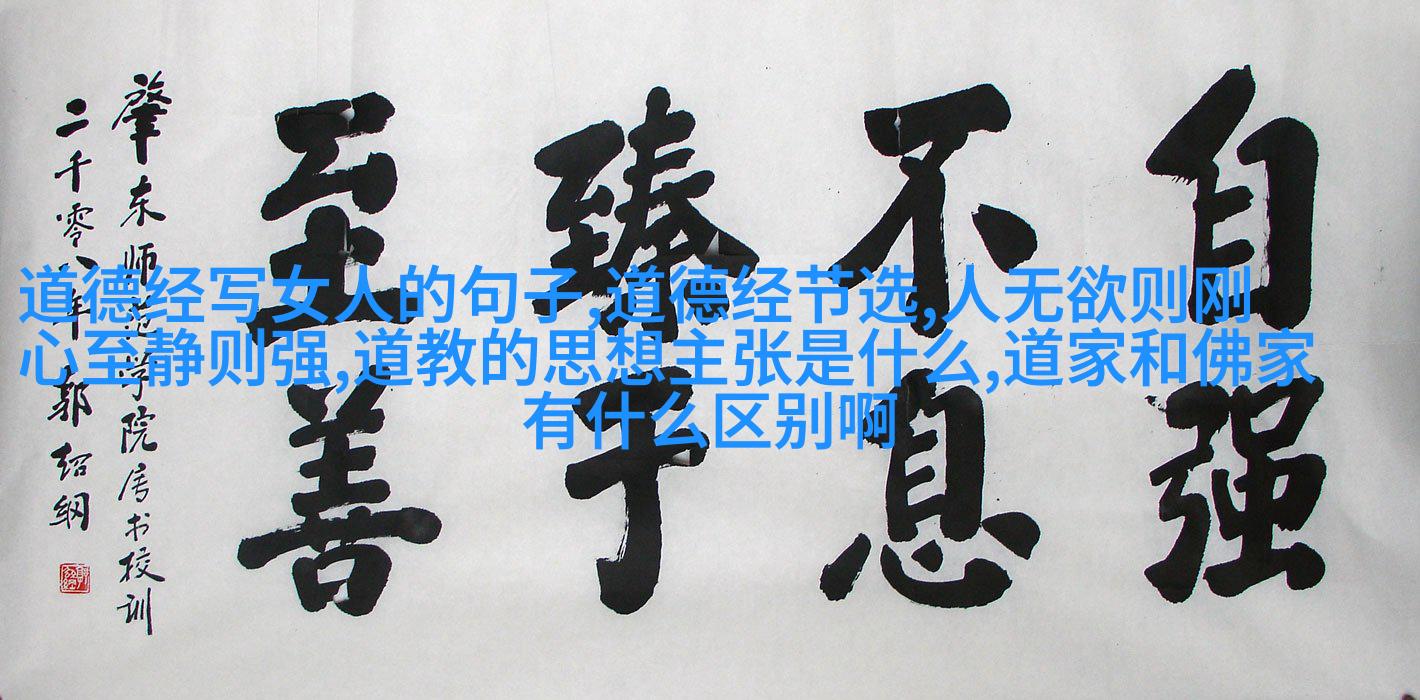 自强
不息
臻于
至善
肇东师范学院属书校训
二千零八年郭绍纲
道德经写女人的句子,道德经节选,人无欲则刚
心至静则强,道教的思想主张是什么,道家和佛家
有什么区别啊